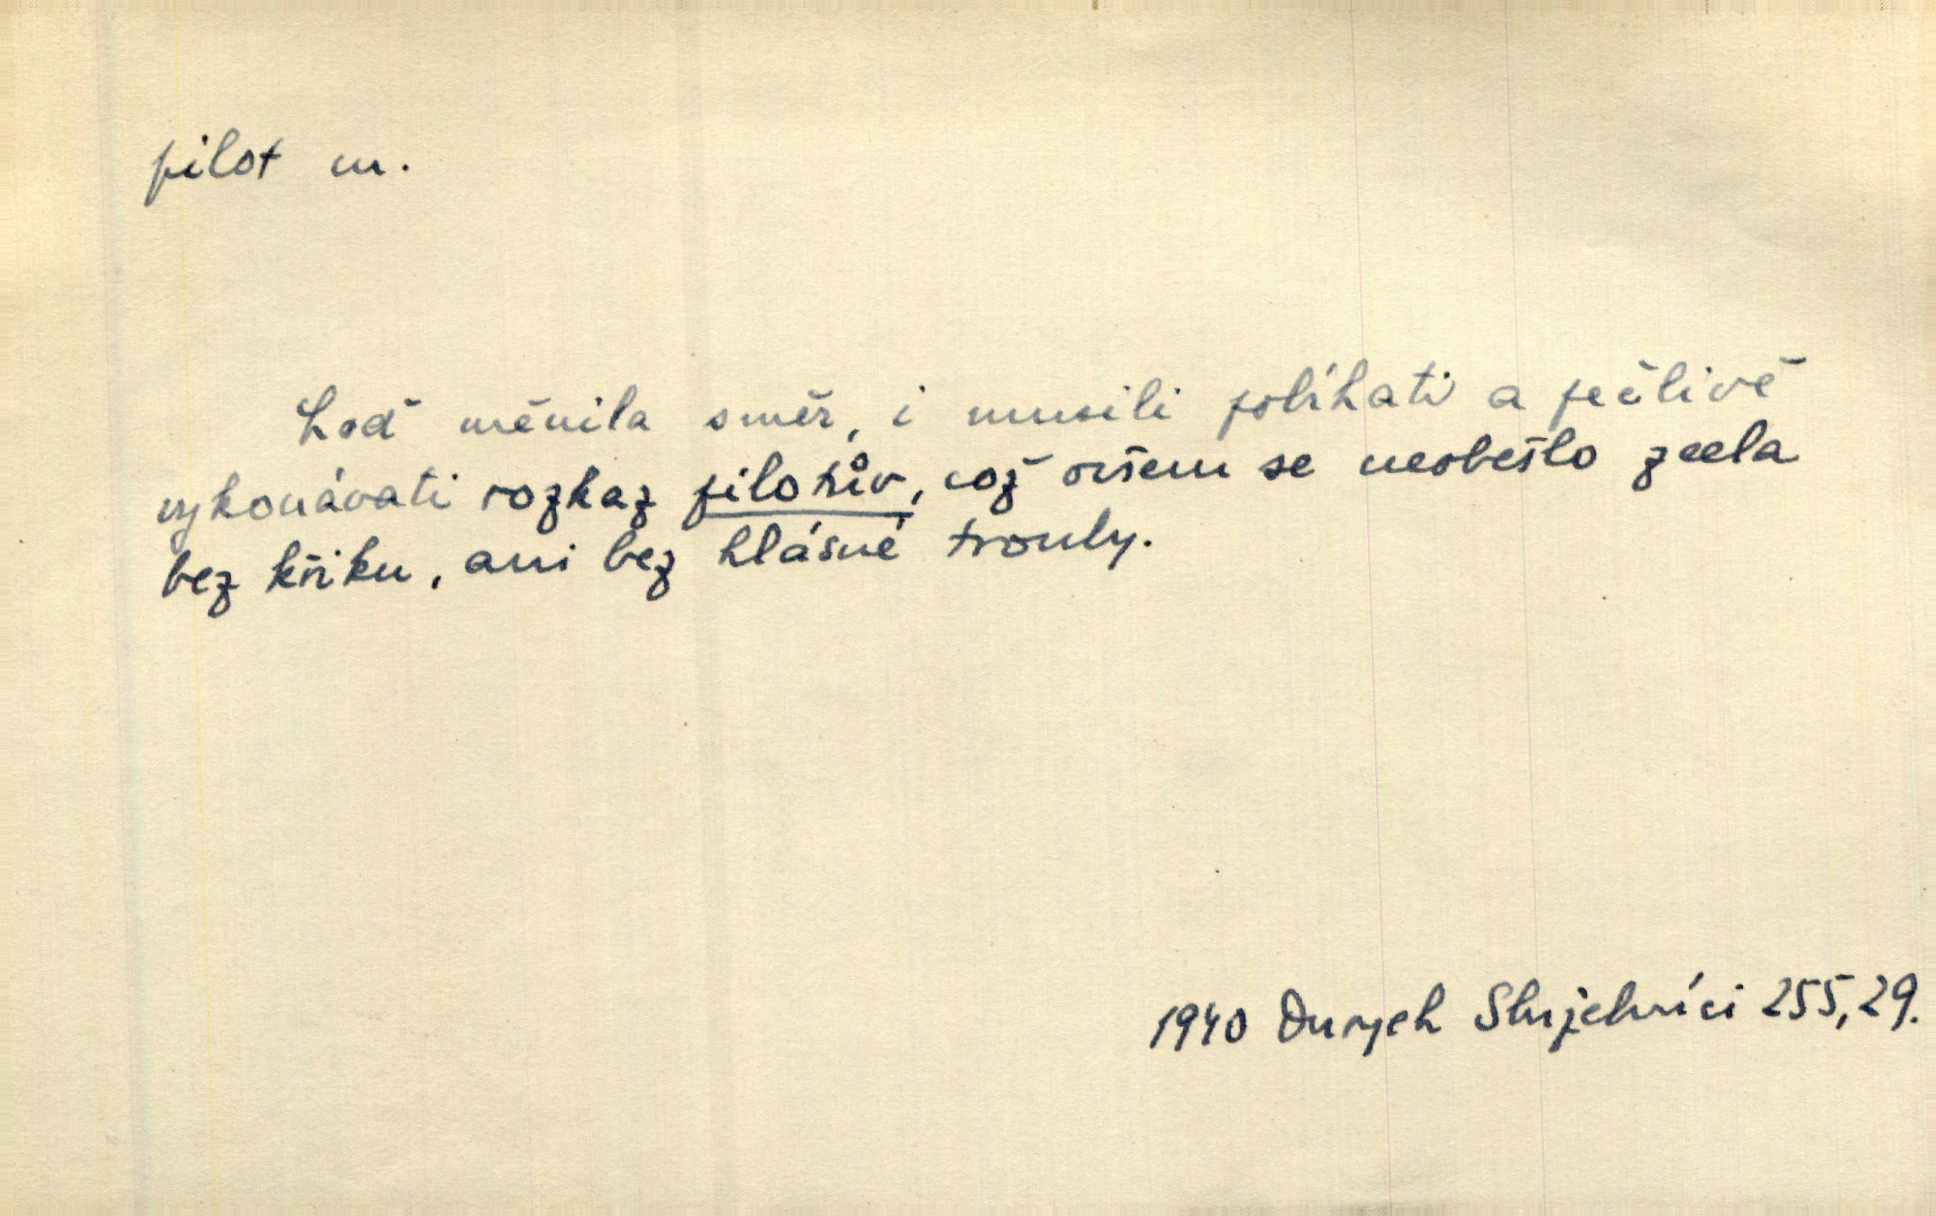 pilot m.
Loď měnila směr, i musili pobíhati a pečlivě
vykonávati rozkaz pilotův, což ovšem se neobešlo zcela
bez křiku, ani bez hlásné trouby.
1940 Durych Služebníci 255,29.